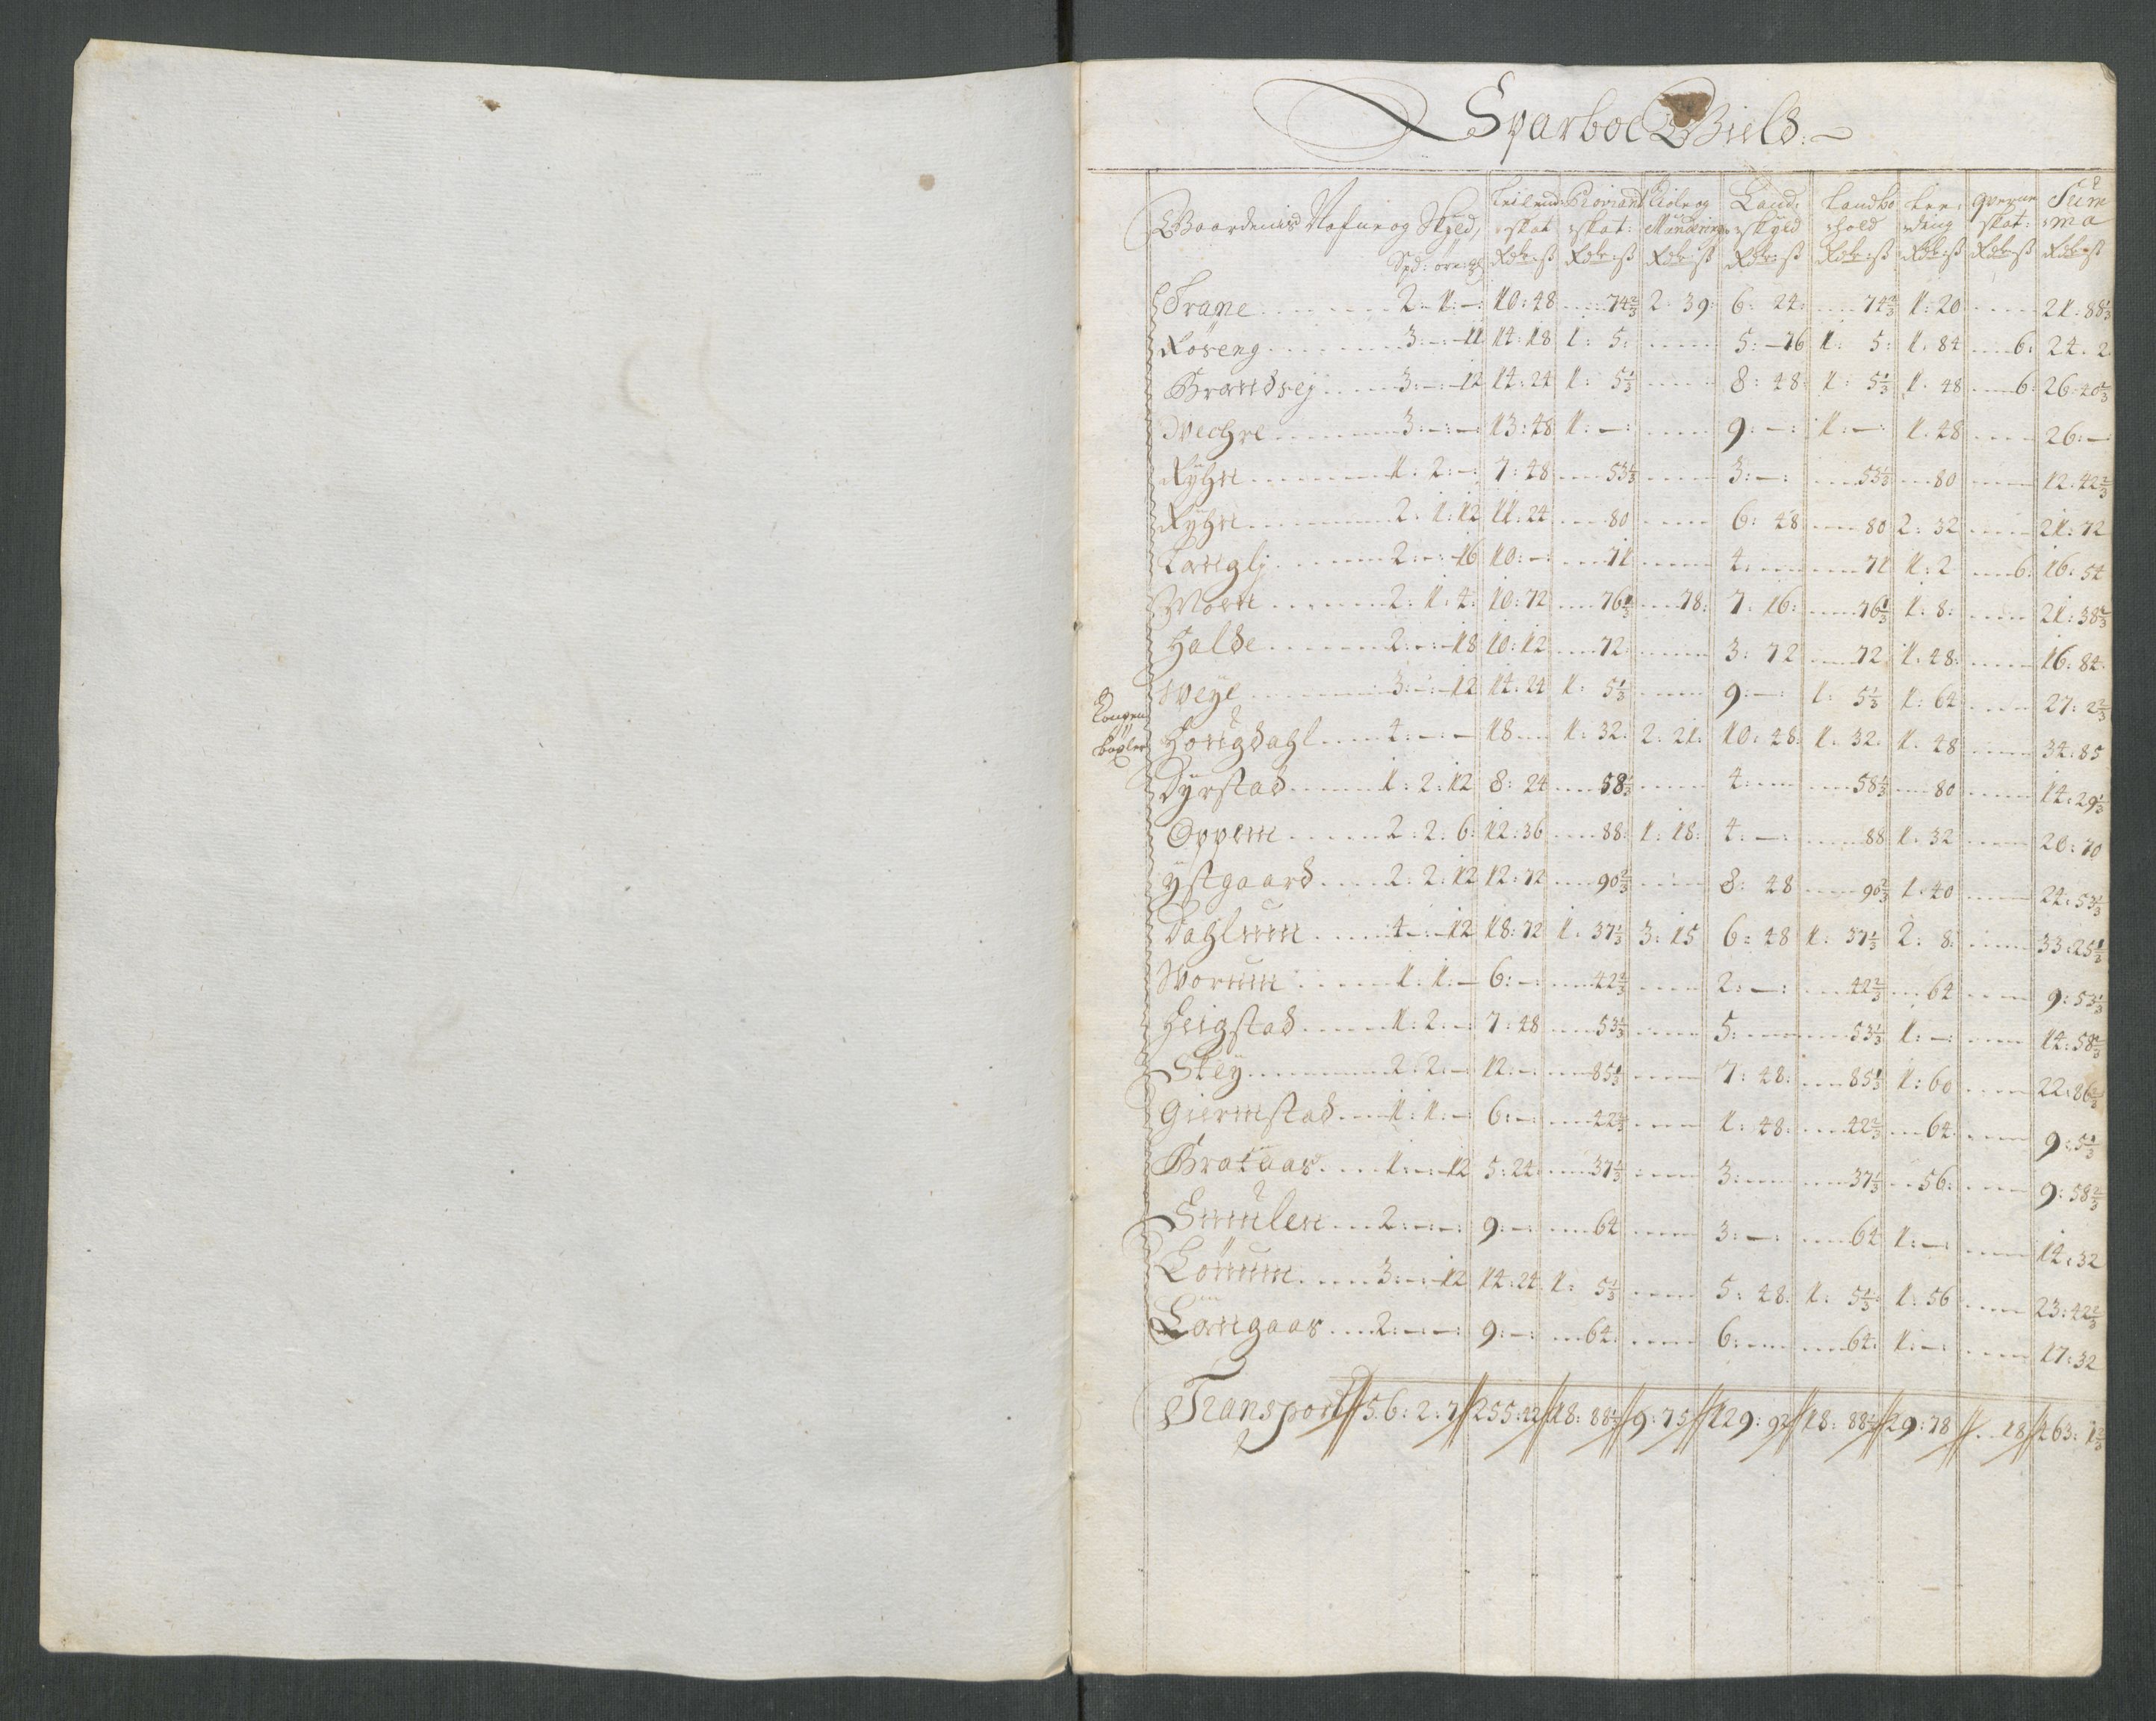 Sparboe Gield.
Gaardenis Nafne og Skyld, Leilend: skat Proviant skat: Kiole og Mundering Land: skyld Landbo hold Lee: ding qverne skat: Sum ma
Spd: öre: Rdr: ß Rdr: ß Rdr: ß Rdr: ß Rdr: ß Rdr: ß Rdr: ß Rdr: ß
Trane 2: 1: – 10: 48 74 2/3 2: 39: 6: 24: 74 2/3 1: 20 21: 88 1/3
Röseng 3: –: 11 14: 18 1: 5: 5: 76 1: 5: 1: 84 6: 24: 2
Brandseg 3: –: 12 14: 24 1: 5 1/3 8: 48: 1: 5 1/3 1: 48 6: 26: 40 2/3
Mechre 3: –: – 13: 48 1: –: 9: –: 1: –: 1: 48 26: –
Ryhn 1: 2: –: 7: 48 53 1/3 3: –: 53 1/3 80 12: 42 2/3
Ryhn 2: 1: 12 11: 24 80 6: 48 80 2: 32 21: 72
Langlj 2: –: 16 10: –: 71 4: 71 1: 2 6: 16: 54
Moen 2: 1: 4: 10: 72 76 1/3 78: 7: 16: 76 1/3 1: 8: 21: 38 2/3
Halde 2: –: 18 10: 12 72: 3: 72 72 1: 48: 16: 84:
Weye 3: –: 12 14: 24 1: 5 1/3 9: –: 1: 5 1/3 1: 64 27: 2 2/3
Kongen
boxler
Hougdahl 4: –: – 18 1: 32: 2: 21: 10: 48: 1: 32: 1: 48 34: 85
Dyrstad 1: 2: 12 8: 24 58 2/3 4: 58 2/3 80 14: 29 1/3
Oppem 2: 2: 6: 12: 36 88: 1: 18: 4: –: 88 1: 32 20: 70
ystgaard 2: 2: 12 12: 72 90 2/3 8: 48 90 2/3 1: 40 24: 53 1/3
Dahlum 4: –: 12 18: 72 1: 37 1/3 3: 15 6: 48 1: 37 1/3 2: 8: 33: 25 2/3
Worum 1: 1: – 6: –: 42 2/3 2: –: 42 2/3 64 9: 53 1/3
Heigstad 1: 2: –: 7: 48 53 1/3 5: 53 1/3 1: –: 14: 58 2/3
Skey 2: 2: –: 12: –: 85 1/3 7: 48: 85 1/3 1: 60 22: 86 2/3
Giermstad 1: 1: –: 6: –: 42 2/3 1: 48: 42 2/3 64: 9: 5 1/3
Brataas 1: –: 12 5: 24: 37 1/3 3: 37 1/3 56: 9: 58 2/3
Smulen 2: –: –: 9: –: 64 3: –: 64 1: –: 14: 32
Lönum 3: –: 12 14: 24: 1: 5 1/3 5: 48: 1: 5 1/3: 1: 56 23: 42 2/3
Langaas 2: –: –: 9: –: 64: 6: 64: 1: –: 17: 32
Transport 56: 2: 7 255: 42 18: 88 2/3 9: 75 129: 92 18: 88 2/3 29: 78 18 463: 1 2/3